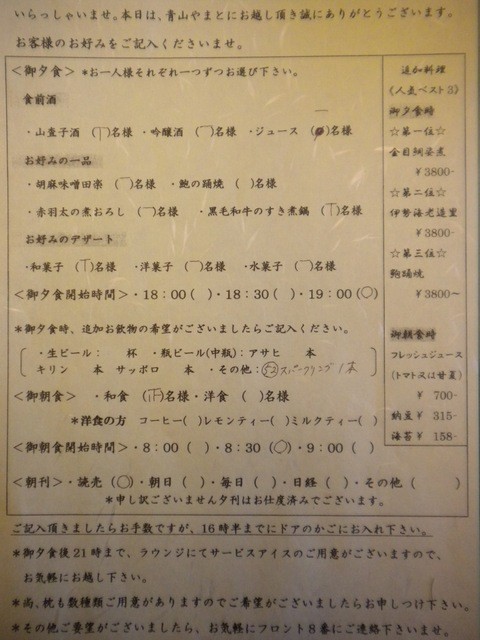 いらっしゃいませ。本日は、青山やまとにお越し頂き誠にありがとうございます。
お客様のお好みをご記入くださいませ。
<御夕食> *お一人様それぞれ一つずつお選び下さい。
食前酒
・山査子酒 (丅)名様 ・吟醸酒 (一)名様 ・ジュース ( )名様
お好みの一品
・胡麻味噌田楽 (一)名様 ・鮑の踊焼 ( )名様
・赤羽太の煮おろし (一)名様 ・黒毛和牛のすき煮鍋 (丅)名様
お好みのデザート
・和菓子 (丅)名様 ・洋菓子 (一)名様 ・水菓子 (一)名様
<御夕食開始時間>・18:00( )・18:30( )・19:00(○)
*御夕食時、追加お飲物の希望がございましたらご記入ください。
・生ビール: 杯 ・瓶ビール(中瓶):アサヒ 本
キリン 本 サッポロ 本 ・その他:スパークリング1本
<御朝食> ・和食 (正)名様・洋食 ( )名様
*洋食の方 コーヒー( )レモンティー( )ミルクティー( )
<御朝食開始時間>・8:00( )・8:30(○)・9:00( )
<朝刊>・読売(○)・朝日( )・毎日( )・日経( )・その他( )
*申し訳ございません夕刊はお仕度済みでございます。
追加料理
《人気ベスト3》
御夕食時
☆第一位☆
金目鯛姿煮
¥3800-
☆第二位☆
伊勢海老道里
¥3800-
☆第三位☆
鮑踊焼
¥3800~
御朝食時
フレッシュジュース
(トマト又は甘夏)
¥ 700-
納豆¥ 315-
海苔¥ 158-
ご記入頂きましたらお手数ですが、16時半までにドアのかごにお入れ下さい。
*御夕食後21時まで、ラウンジにてサービスアイスのご用意がございますので、
お気軽にお越し下さい。
*尚、枕も数種類ご用意がありますのでご希望がございましたらお申しつけ下さい。
*その他ご要望がございましたら、お気軽にフロント8番にご連絡下さいませ。